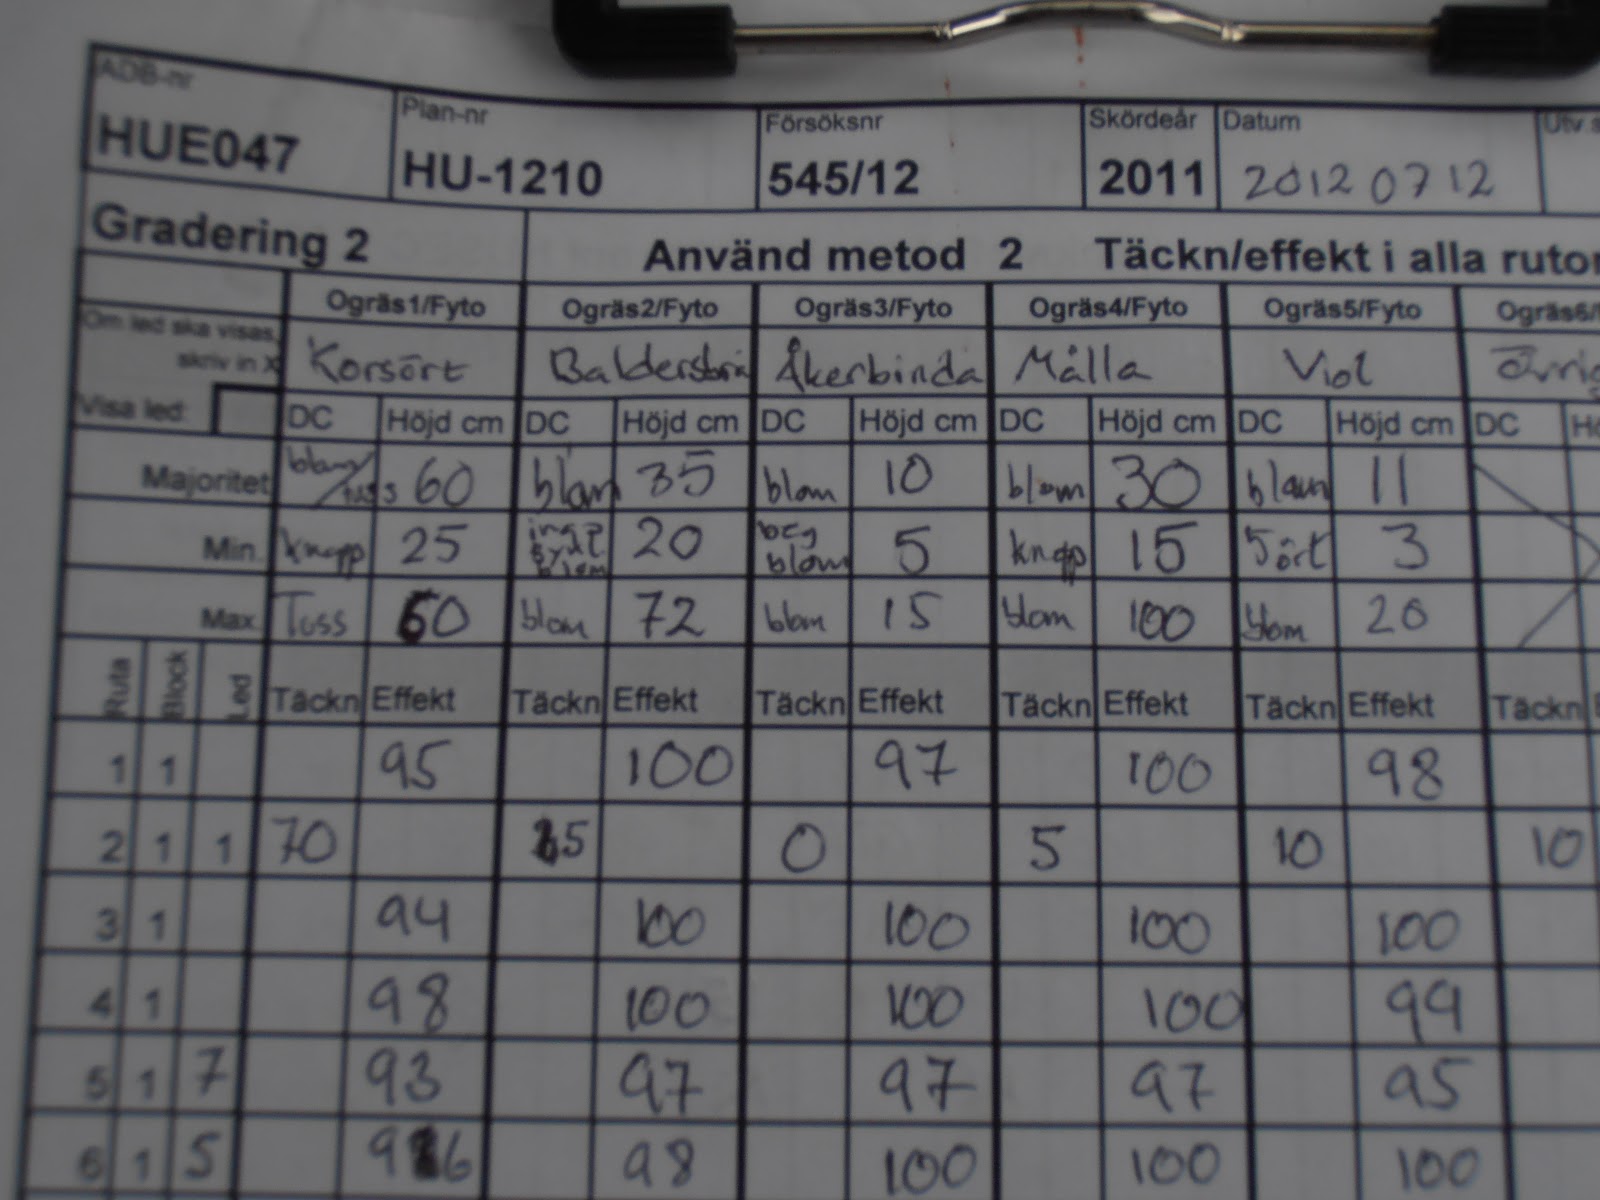 ADB-nr Plan-nr Försöksnr Skördeår Datum Utv.s
HUE047 HU-1210 545/12 2011 20120712
Gradering 2 Använd metod 2 Täckn/effekt i alla rutor
Ogräs1/Fyto Ogräs2/Fyto Ogräs3/Fyto Ogräs4/Fyto Ogräs5/Fyto Ogräs6/
Om led ska visas,
skriv in X Korsört Baldersbrå Åkerbinda Målla Viol Övrig
Visa led: DC Höjd cm DC Höjd cm DC Höjd cm DC Höjd cm DC Höjd cm DC Hö
Majoritet 60 blom 35 blom 10 blom 30 blom 11
Min. knopp 25 20 beg blom 5 knopp 15 5ört 3
Max Tuss 60 blom 72 blom 15 blom 100 blom 20
Ruta Block Led Täckn Effekt Täckn Effekt Täckn Effekt Täckn Effekt Täckn Effekt Täckn E
1 1 95 100 97 100 98
2 1 1 70 5 0 5 10 10
3 1 94 100 100 100 100
4 1 98 100 100 100 99
5 1 7 93 97 97 97 95
6 1 5 96 98 100 100 100